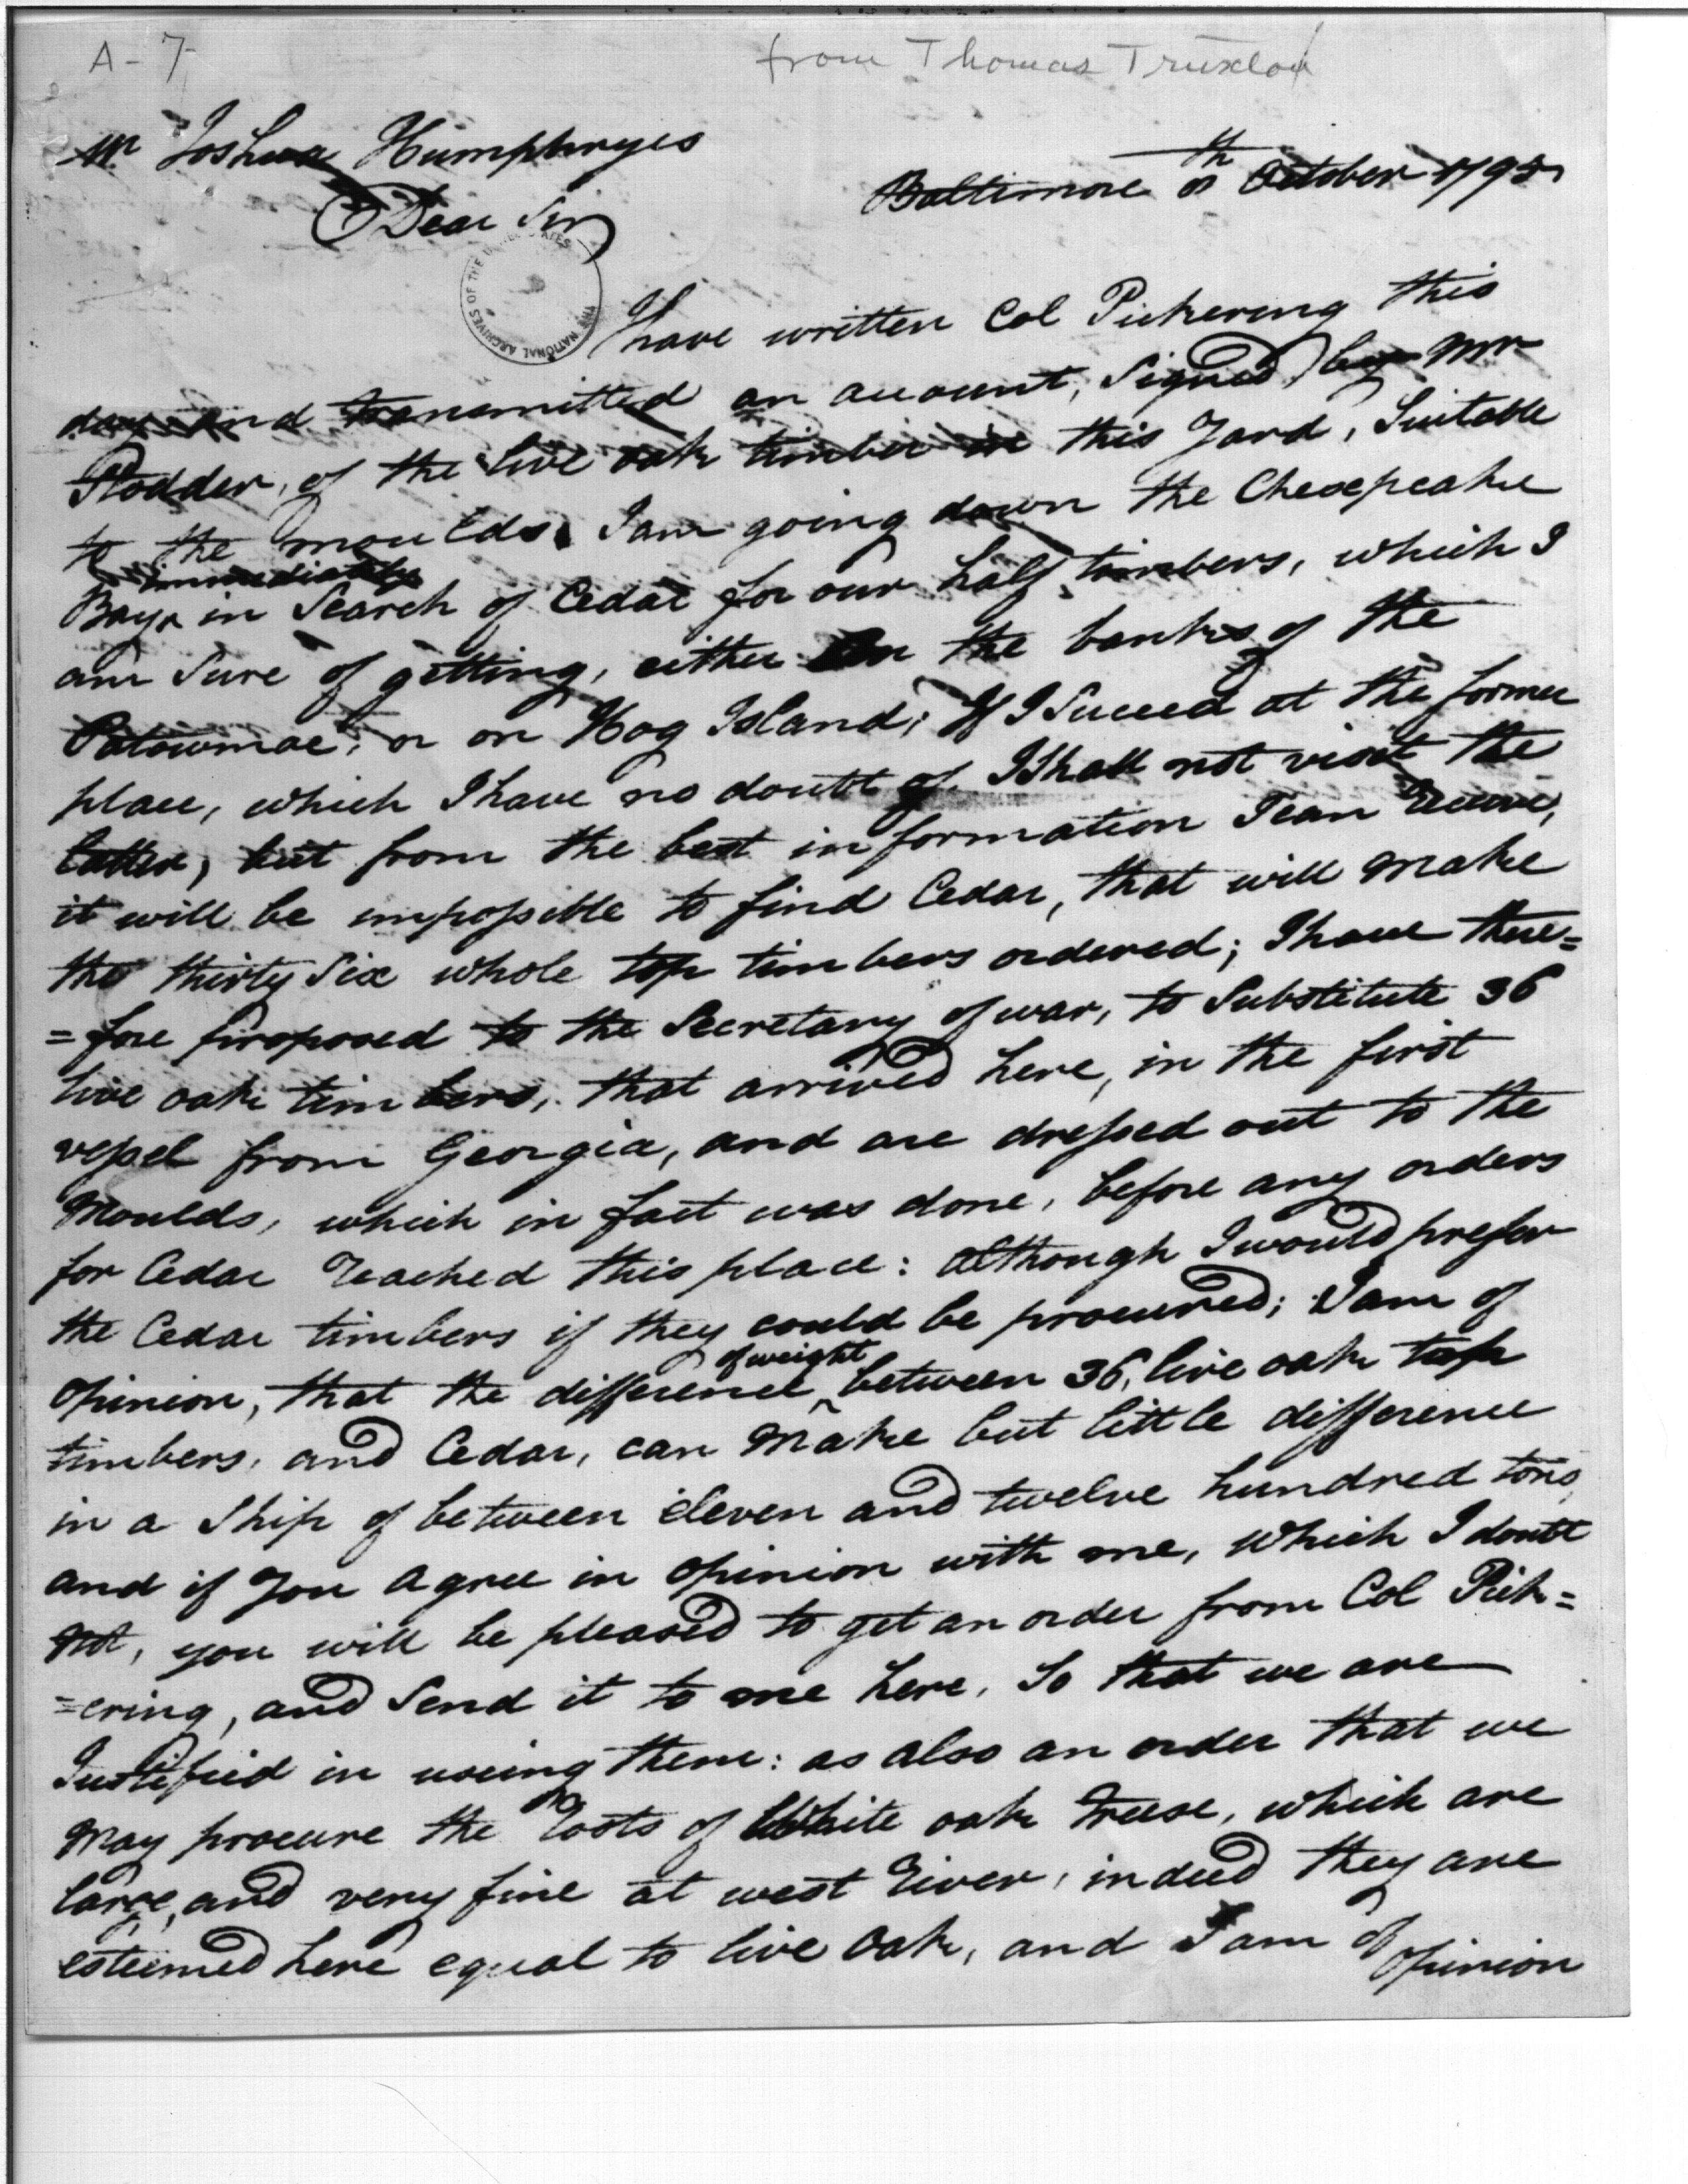 A-7
from Thomas Truxton
Mr Joshua Humphryes
Baltimore th October 1795
Dear Sir
THE NATIONAL ARCHIVES OF THE UNITED STATES
I have written Col Pickering this
day and transmitted an account, Signed by Mr
Stodder, of the live oak timber in this Yard, Suitable
to the moulds. I am going down the Chesepeake
immediately
Bay^ in Search of Cedar for our half timbers, which I
am Sure of getting, either on the banks of the
Patowmac, or on Hog Island; If I Succeed at the former
place, which I have no doubt of. I Shall not visit the
latter, but from the best information I can receive,
it will be impossible to find Cedar, that will make
the thirty Six whole top timbers ordered; I have there=
=fore proposed to the Secretary of war, to Substitute 36
live oak timbers, that arrived here, in the first
vessel from Georgia, and are dressed out to the
Moulds, which in fact was done, before any orders
for Cedar reached this place: although I would prefer
the Cedar timbers if they could be procured; I am of
of weight
opinion, that the difference^ between 36, live oak top
timbers, and Cedar, can make but little difference
in a Ship of between eleven and twelve hundred tons,
and if you agree in opinion with me, which I doubt
not, you will be pleased to get an order from Col Pick=
=ering, and Send it to me here, So that we are
Justified in useing them: as also an order that we
may procure the roots of White oak Treese, which are
large, and very fine at west river, indeed they are
esteemed here equal to live oak, and I am of
opinion